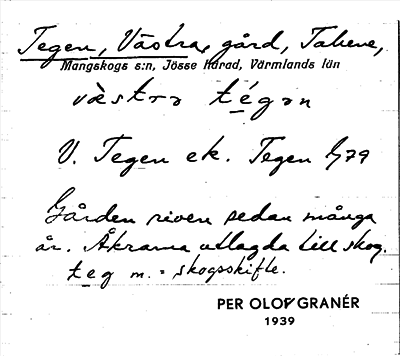 Tegen, Västra, gård, Takene,
Mangskogs s:n, Jösse härad, Värmlands län
væ̀stra té̱gən
V. Tegen ek. Tegen 1/79
Gården riven sedan många
år. Åkrarna utlagda till skog.
te̱g m. = skogsskifte.
PER OLOF GRANÉR
1939